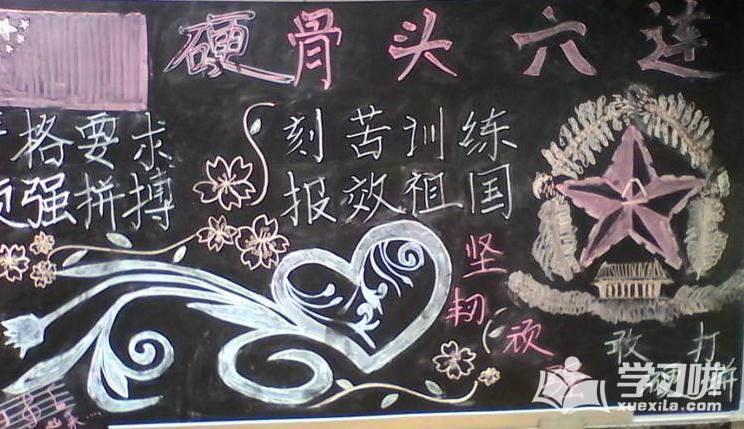 硬骨头六连
格要求
强拼搏
刻苦训练
报效祖国
坚韧
顽
敢打
拼
学习啦
xuexila.com